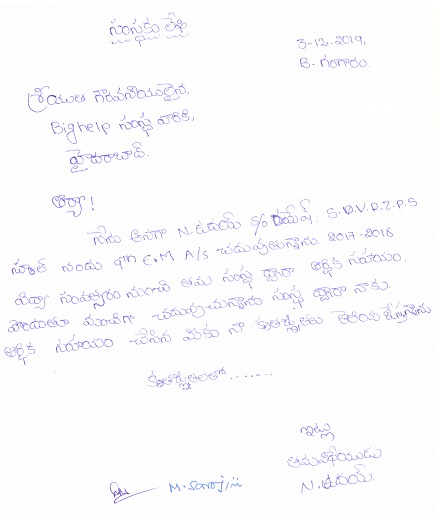 సంస్థకు లేఖ
3-12-2019,
B. గంగారం.
శ్రీయుత గౌరవనీయులైన,
Bighelp సంస్థ వారికి,
హైదరాబాద్.
ఆర్యా!
నేను అనగా N. ఉదయ్ S/o రమేష్. S.D.V.R.Z.P.S
స్కూల్ నందు 9th E.M A/s చదువుతున్నాను. 2017-2018
విద్యా సంవత్సరం నుంచి తమ సంస్థ ద్వారా ఆర్థిక సహాయం.
పొందుతూ మంచిగా చదువుచున్నాను సంస్థ ద్వారా నాకు
ఆర్థిక సహాయం చేసిన మీకు నా కృతజ్ఞతలు తెలియజేస్తున్నాను
కృతజ్ఞతలతో.......
ఇట్లు
తమవిధేయుడు
N. ఉదయ్.
M. Sarojini